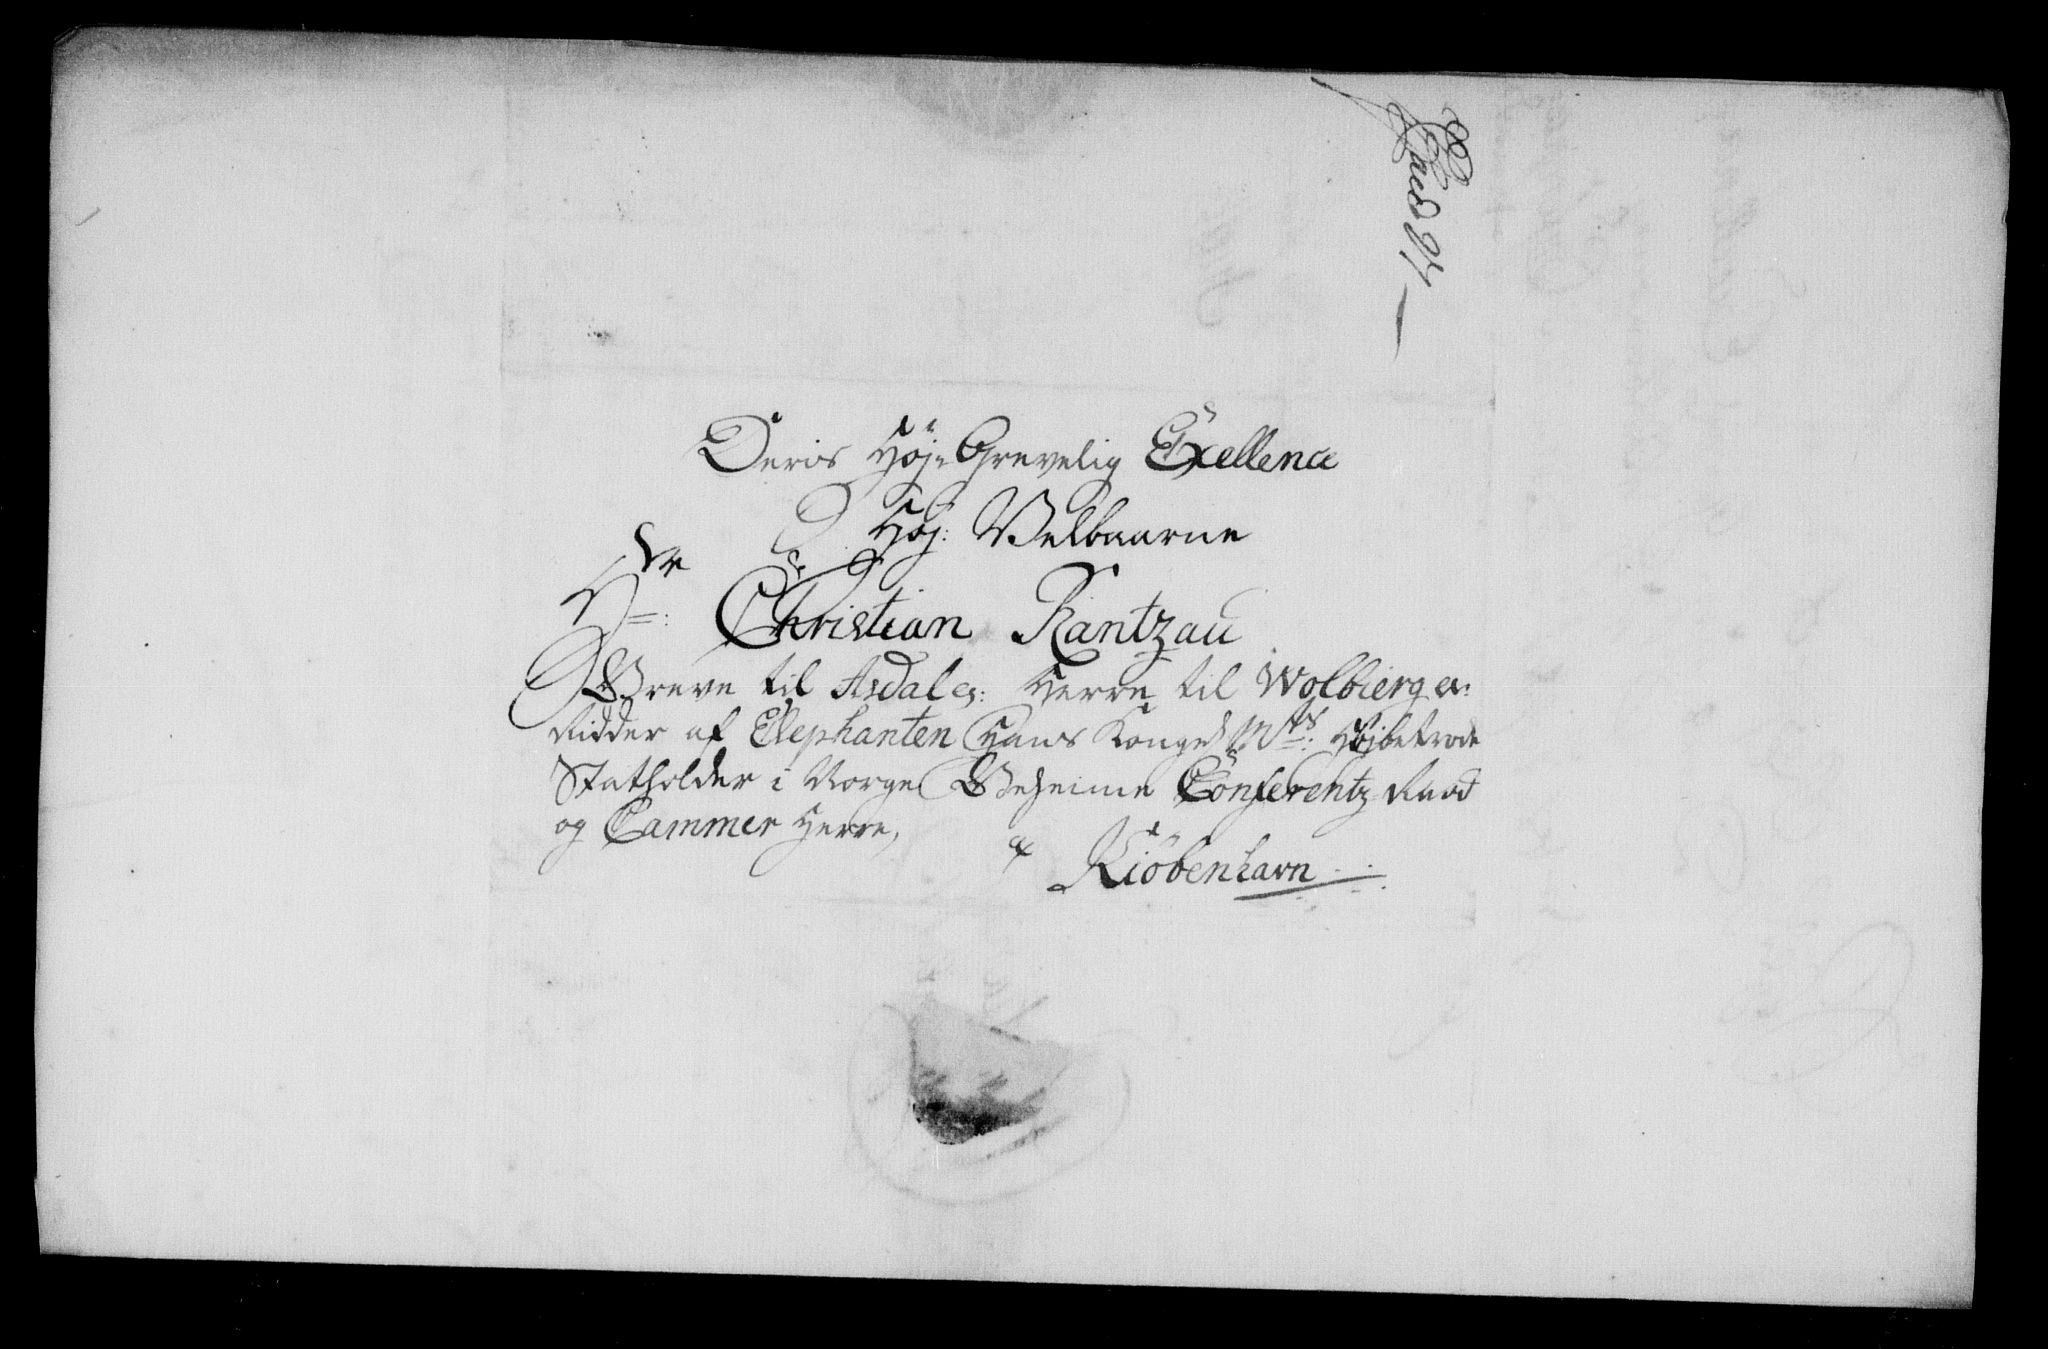 Deris Høj Grevelig Excellence
Høj: Velbaarne
Hr: Christian Rantzau
Greve til Asdal etc: Herre til Wolbierg etc:
Ridder af Elephanten Hans Kongel Mts: Højbetrode
Statholder i Norge Geheime Conferentz Raad
og Cammer Herre,
Kiöbenhavn